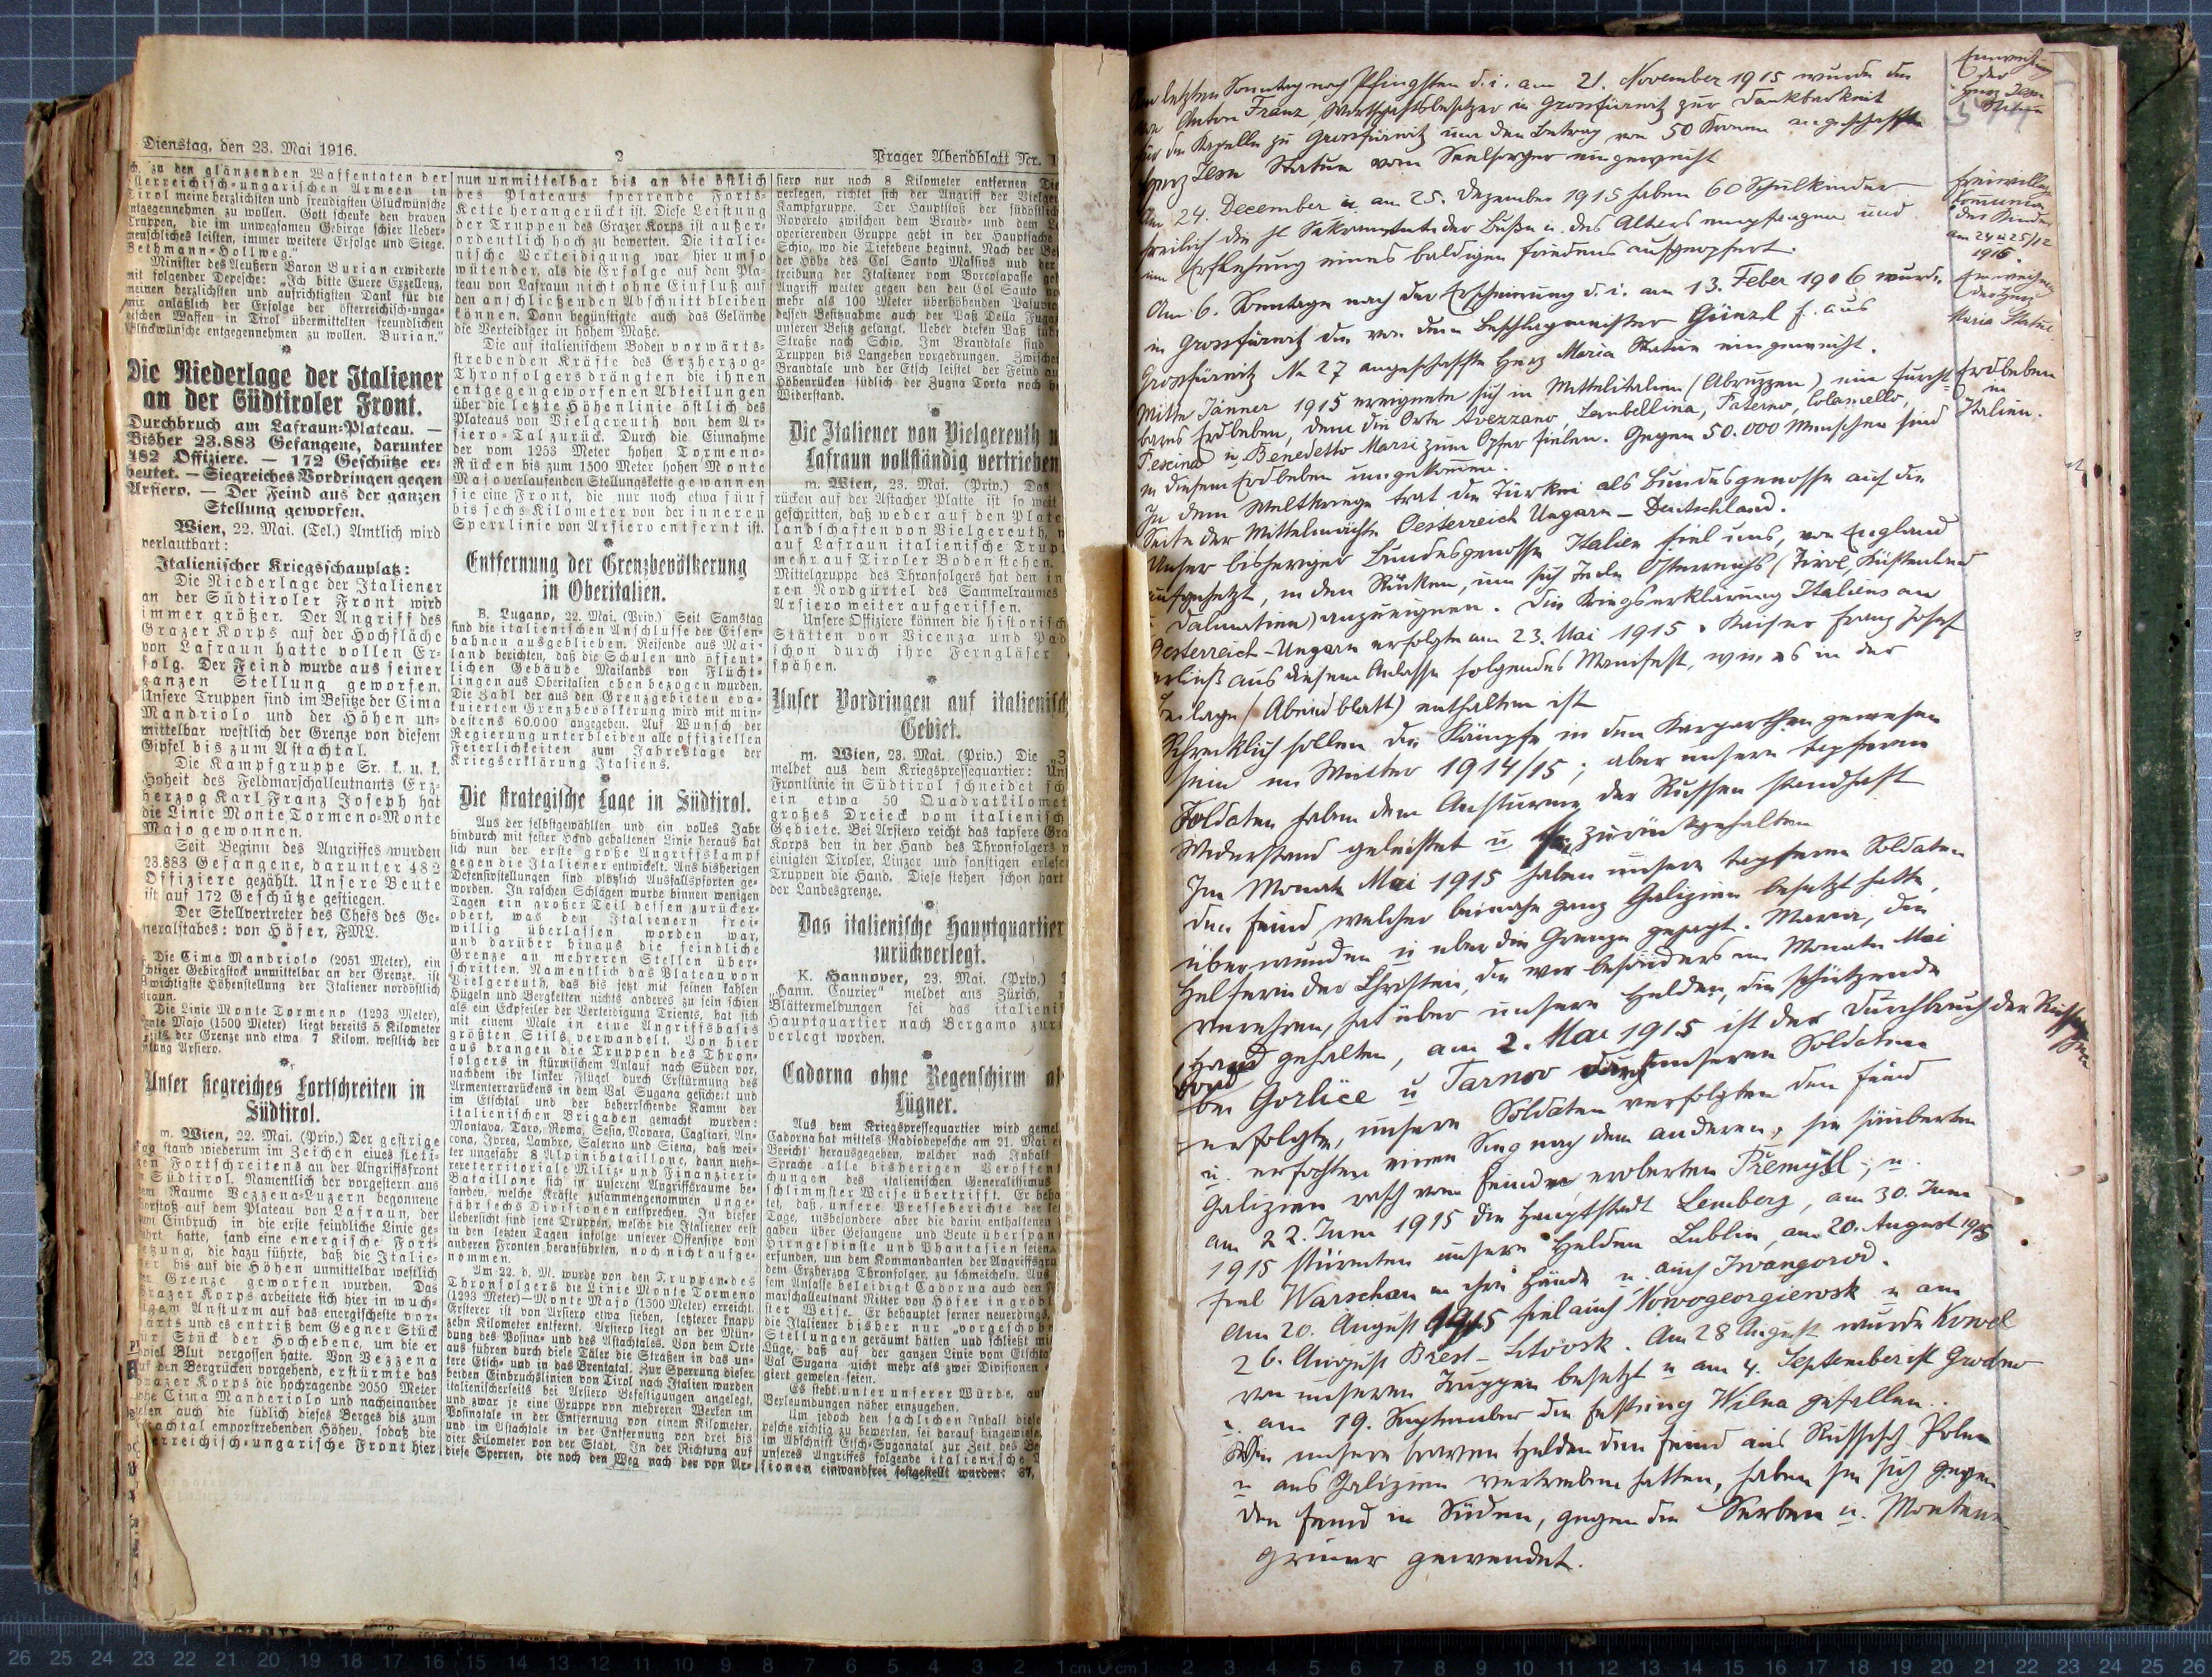 Dienstag, den 23. Mai 1916.
2
Prager Abendblatt Nr. 1
zu den glänzenden Waffentaten der
österreichisch-ungarischen Armeen in
Tirol meine herzlichsten und freudigsten Glückwünsche
entgegennehmen zu wollen. Gott schenke den braven
Truppen, die im unwegsamen Gebirge schier Ueber-
menschliches leisten, immer weitere Erfolge und Siege.
Bethmann-Hollweg."
Minister des Aeußern Baron Burian erwiderte
mit folgender Depesche: „Ich bitte Euere Exzellenz,
meinen herzlichsten und aufrichtigsten Dank für die
mir anläßlich der Erfolge der österreichisch-unga-
rischen Waffen in Tirol übermittelten freundlichen
Glückwünsche entgegennehmen zu wollen. Burian."
Die Niederlage der Italiener
an der Südtiroler Front.
Durchbruch am Lafraun-Plateau. —
Bisher 23.883 Gefangene, darunter
482 Offiziere. — 172 Geschütze er-
beutet. — Siegreiches Vordringen gegen
Arsiero. — Der Feind aus der ganzen
Stellung geworfen.
Wien, 22. Mai. (Tel.) Amtlich wird
verlautbart:
Italienischer Kriegsschauplatz:
Die Niederlage der Italiener
an der Südtiroler Front wird
immer größer. Der Angriff des
Grazer Korps auf der Hochfläche
von Lafraun hatte vollen Er-
folg. Der Feind wurde aus seiner
ganzen Stellung geworfen.
Unsere Truppen sind im Besitze der Cima
Mandriolo und der Höhen un-
mittelbar westlich der Grenze von diesem
Gipfel bis zum Astachtal.
Die Kampfgruppe Sr. k. u. k.
Hoheit des Feldmarschalleutnants Erz-
herzog Karl Franz Joseph hat
die Linie Monte Tormeno-Monte
Majo gewonnen.
Seit Beginn des Angriffes wurden
23.883 Gefangene, darunter 482
Offiziere gezählt. Unsere Beute
ist auf 172 Geschütze gestiegen.
Der Stellvertreter des Chefs des Ge-
neralstabes: von Höfer, FML.
Die Cima Mandriolo (2051 Meter), ein
mächtiger Gebirgstock unmittelbar an der Grenze, ist
wichtigste Höhenstellung der Italiener nordöstlich
Lafraun.
Die Linie Monte Tormeno (1293 Meter),
Monte Majo (1500 Meter) liegt bereits 5 Kilometer
der Grenze und etwa 7 Kilom. westlich der
Arsiero.
Unser siegreiches Fortschreiten in
Südtirol.
m. Wien, 22. Mai. (Priv.) Der gestrige
Tag stand wiederum im Zeichen eines steti-
gen Fortschreitens an der Angriffsfront
in Südtirol. Namentlich der vorgestern aus
dem Raume Vezzena-Luzern begonnene
Vorstoß auf dem Plateau von Lafraun, der
zum Einbruch in die erste feindliche Linie ge-
führt hatte, fand eine energische Fort-
setzung, die dazu führte, daß die Italie-
ner bis auf die Höhen unmittelbar westlich
der Grenze geworfen wurden. Das
Grazer Korps arbeitete sich hier in wuch-
tigem Ansturm auf das energischeste vor-
wärts und es entriß dem Gegner Stück
für Stück der Hochebene, um die er
soviel Blut vergossen hatte. Von Vezzena
auf den Bergrücken vorgehend, erstürmte das
Grazer Korps die hochragende 2050 Meter
hohe Cima Manderiolo und nacheinander
auch die südlich dieses Berges bis zum
Astachtal emporstrebenden Höhen, sodaß die
österreichisch-ungarische Front hier
nun unmittelbar bis an die östlich
des Plateaus sperrende Forts-
Kette herangerückt ist. Diese Leistung
der Truppen des Grazer Korps ist außer-
ordentlich hoch zu bewerten. Die italie-
nische Verteidigung war hier umso
wütender, als die Erfolge auf dem Pla-
teau von Lafraun nicht ohne Einfluß auf
den anschließenden Abschnitt bleiben
können. Dann begünstigte auch das Gelände
die Verteidiger in hohem Maße.
Die auf italienischem Boden vorwärts-
strebenden Kräfte des Erzherzog-
Thronfolgers drängten die ihnen
entgegengeworfenen Abteilungen
über die letzte Höhenlinie östlich des
Plateaus von Vielgereuth von dem Ar-
siero-Tal zurück. Durch die Einnahme
der vom 1253 Meter hohen Tormeno-
Rücken bis zum 1500 Meter hohen Monte
Majo verlaufenden Stellungskette gewannen
sie eine Front, die nur noch etwa fünf
bis sechs Kilometer von der inneren
Sperrlinie von Arsiero entfernt ist.
Entfernung der Grenzbevölkerung
in Oberitalien.
B. Lugano, 22. Mai. (Priv.) Seit Samstag
sind die italienischen Anschlüsse der Eisen-
bahn ausgeblieben. Reisende aus Mai-
land berichten, daß die Schulen und öffent-
lichen Gebäude Mailands von Flücht-
lingen aus Oberitalien eben bezogen wurden.
Die Zahl der aus den Grenzgebieten eva-
kuierten Grenzbevölkerung wird mit min-
destens 60.000 angegeben. Auf Wunsch der
Regierung unterbleiben alle offiziellen
Feierlichkeiten zum Jahrestage der
Kriegserklärung Italiens.
Die strategische Lage in Südtirol.
Aus der selbstgewählten und ein volles Jahr
hindurch mit fester Hand gehaltenen Linie heraus hat
sich nun der erste große Angriffskampf
gegen die Italiener entwickelt. Aus bisherigen
Defensivstellungen sind plötzlich Ausfallspforten ge-
worden. In raschen Schlägen wurde binnen wenigen
Tagen ein großer Teil dessen zurücker-
obert, was den Italienern frei-
willig überlassen worden war,
und darüber hinaus die feindliche
Grenze an mehreren Stellen über-
schritten. Namentlich das Plateau von
Vielgereuth, das bis jetzt mit seinen kahlen
Hügeln und Bergketten nichts anderes zu sein schien
als ein Eckpfeiler der Verteidigung Trients, hat sich
mit einem Male in eine Angriffsbasis
größten Stils verwandelt. Von hier
aus drangen die Truppen des Thron-
folgers in stürmischem Anlauf nach Süden vor,
nachdem ihr linker Flügel durch Erstürmung des
Armenterrarückens in dem Val Sugana gesichert und
im Etschtal und der beherrschende Kamm der
italienischen Brigaden gemacht wurden:
Montava, Taro, Roma, Sesia, Novara, Cagliari, An-
cona, Ivrea, Lambro, Salerno und Siena, daß wei-
ter ungefähr 8 Alpinibataillone, dann meh-
rere territoriale Miliz- und Finanzieri-
Bataillone sich in unserem Angriffsraume be-
fanden, welche Kräfte zusammengenommen unge-
fähr sechs Divisionen entsprechen. In dieser
Uebersicht sind jene Truppen, welche die Italiener erst
in den letzten Tagen infolge unserer Offensive von
anderen Fronten heranführten, noch nicht aufge-
nommen.
Am 22. d. M. wurde von den Truppen des
Thronfolgers die Linie Monte Tormeno
(1293 Meter)—Monte Majo (1500 Meter) erreicht.
Ersterer ist von Arsiero etwa sieben, letzterer knapp
zehn Kilometer entfernt. Arsiero liegt an der Mün-
dung des Posina- und des Astachtales. Von dem Orte
aus führen durch diese Täler die Straßen in das un-
tere Etsch- und in das Brentatal. Zur Sperrung dieser
beiden Einbruchslinien von Tirol nach Italien wurden
italienischerseits bei Arsiero Befestigungen angelegt,
und zwar je eine Gruppe von mehreren Werken im
Posinatale in der Entfernung von einem Kilometer,
und im Astachtale in der Entfernung von drei bis
vier Kilometer von der Stadt. In der Richtung auf
diese Sperren, die noch den Weg nach der von Ar-
siero nur noch 8 Kilometer entfernen
verlegen, richtet sich der Angriff der Vielger
Kampfgruppe. Der Hauptstoß der südöstlich
Rovereto zwischen dem Brand- und dem
operierenden Gruppe geht in der Hauptsache
Schio, wo die Tiefebene beginnt. Nach der
der Höhe des Col Santo Massivs und der
treibung der Italiener vom Borcolapasse
Angriff weiter gegen den den Col Santo
mehr als 100 Meter überhöhenden
dessen Besitznahme auch der Paß Della
unseren Besitz gelangt. Ueber diesen Paß
Straße nach Schio. Im Brandtale sind
Truppen bis Langeben vorgedrungen. Zwischen
Brandtale und der Etsch leistet der Feind
Höhenrücken südlich der Zugna Torta noch
Widerstand.
Die Italiener von Vielgereuth u
Lafraun vollständig vertrieben
m. Wien, 23. Mai. (Priv.) Das
rücken auf der Astacher Platte ist so weit
geschritten, daß weder auf den Plate
landschaften von Vielgereuth,
auf Lafraun italienische Trup
mehr auf Tiroler Boden stehen.
Mittelgruppe des Thronfolgers hat den in
ren Nordgürtel des Sammelraumes
Arsiero weiter aufgerissen.
Unsere Offiziere können die historisch
Stätten von Vicenza und Pad
schon durch ihre Ferngläser
spähen.
Unser Vordringen auf italienisch
Gebiet.
m. Wien, 23. Mai. (Priv.) Die
meldet aus dem Kriegspressequartier: Un
Frontlinie in Südtirol schneidet
ein etwa 50 Quadratkilomet
großes Dreieck vom italienisch
Gebiete. Bei Arsiero reicht das tapfere Gra
Korps den in der Hand des Thronfolgers
einigten Tiroler, Linzer und sonstigen erlese
Truppen die Hand. Diese stehen schon hart
der Landesgrenze.
Das italienische Hauptquartier
zurückverlegt.
K. Hannover, 23. Mai. (Priv.)
„Hann. Courier" meldet aus Zürich,
Blättermeldungen sei das italienis
Hauptquartier nach Bergamo zur
verlegt worden.
Cadorna ohne Regenschirm al
Lügner.
Aus dem Kriegspressequartier wird gemel
Cadorna hat mittels Radiodepesche am 21. Mai
Bericht herausgegeben, welcher nach Inhalt
Sprache alle bisherigen Veröffent
chungen des italienischen Generalissimus
schlimmster Weise übertrifft. Er beha
tet, daß unsere Presseberichte der
Tage, insbesondere aber die darin enthaltenen
gaben über Gefangene und Beute überspan
Hirngespinste und Phantasien seien
erfunden, um dem Kommandanten der Angriffsgru
dem Erzherzog Thronfolger, zu schmeicheln. Aus
sem Anlasse beleidigt Cadorna auch den
marschalleutnant Ritter von Höfer in gröbl
ster Weise. Er behauptet ferner neuerdings,
die Italiener bisher nur „vorgeschobe
Stellungen geräumt hätten und schließt mit
Lüge, daß auf der ganzen Linie vom Etschta
Val Sugana nicht mehr als zwei Divisionen
giert gewesen seien.
Es steht unter unserer Würde, auf
Verleumdungen näher einzugehen.
Um jedoch den sachlichen Inhalt diese
pesche richtig zu bewerten, sei darauf hingewiese
im Abschnitt Etsch-Suganatal zur Zeit des Be
unseres Angriffes folgende italienische
sionen einwandfrei festgestellt wurden: 37,
letzten Sonntag nach Pfingsten d. i. am 21. November 1915 wurde die
von Anton Franz, Wirtschaftsbesitzer in Grossfürwitz zur Dankbarkeit
für die Kapelle zu Grossfürwitz um den Betrag von 50 Kronen angeschaffte
Herz Jesu Statue vom Seelsorger eingeweiht
Am 24. December u. am 25. Dezember 1915 haben 60 Schulkinder
freilich die hl Sakramente der Buße u. des Altars empfangen und
um Erflehung eines baldigen Friedens aufgeopfert.
Am 6. Sonntage nach der Erscheinung d. i. am 13. Feber 1906 wurde
in Grossfürwitz die von dem Beschlagmeister Günzl f. aus
Grossfürwitz No 27 angeschaffte Herz Maria Statue eingeweiht.
Mitte Jänner 1915 ereignete sich in Mittelitalien (Abruzzen) ein furcht-
bares Erdbeben, dem die Orte Avezzano, Paterno,
Pescina u. Benedetto Marsi zum Opfer fielen. Gegen 50.000 Menschen sind
in diesem Erdbeben umgekommen.
In dem Weltkriege trat die Türkei als Bundesgenosse auf die
Seite der Mittelmächte Oesterreich Ungarn – Deutschland.
Unser bisheriger Bundesgenosse Italien fiel uns, von England
aufgehetzt, in den Rücken, um sich Teile Österreichs (Tirol, Küstenland
Dalmatien) anzueignen. Die Kriegserklärung Italiens an
Oesterreich-Ungarn erfolgte am 23. Mai 1915. Kaiser Franz Josef
erließ aus diesem Anlasse folgendes Manifest, wie es in der
Beilage (Abendblatt) enthalten ist
Schrecklich sollen die Kämpfe in den Karparthen gewesen
sein im Winter 1914/15; aber unsere tapferen
Soldaten haben dem Ansturme der Russen standhaft
Widerstand geleistet u. zurückgehalten
Im Monate Mai 1915 haben unsere tapferen Soldaten
den Feind, welcher beinahe ganz Galizien besetzt hatte,
überwunden u. über die Grenze gejagt. Maria, die
Helferin der Christen, die wir besonders im Monate Mai
verehren, hat über unsere Helden, die schützende
Hand gehalten, am 2. Mai 1915 ist der Durchbruch der Russen
bei Gorlice u. Tarnow durch unseren Soldaten
erfolgte, unsere Soldaten verfolgten den Feind
u. erfochten einen Sieg nach dem anderen, sie säuberten
Galizien rasch vom Feinde eroberten Přemysl; u.
am 22. Juni 1915 die Hauptstadt Lemberg, am 30. Juni
1915 stürmten unsere Helden Lublin, am 20. August 1915
fiel Warschau in ihre Hände u. auch Iwangorod.
Am 20. August 1915 fiel auch Nowogeorgiewsk u am
26. August Brest-Litovsk. Am 28 August wurde Kowel
von unseren Truppen besetzt u am 4. September ist Grodno
u. am 19. September die Festung Wilna gefallen.
Wie unsere braven Helden den Feind aus Russisch Polen
u aus Galizien vertrieben hatten, haben sie sich gegen
den Feind im Süden, gegen die Serben u. Montene-
griner gewendet.
Einweihung
der
Herz Jesu
Statue
freiwillige
Communion
der Kinder
am 24 u 25/12
1915.
Einweihung
der Herz
Maria Statue
Erdbeben
in
Italien.